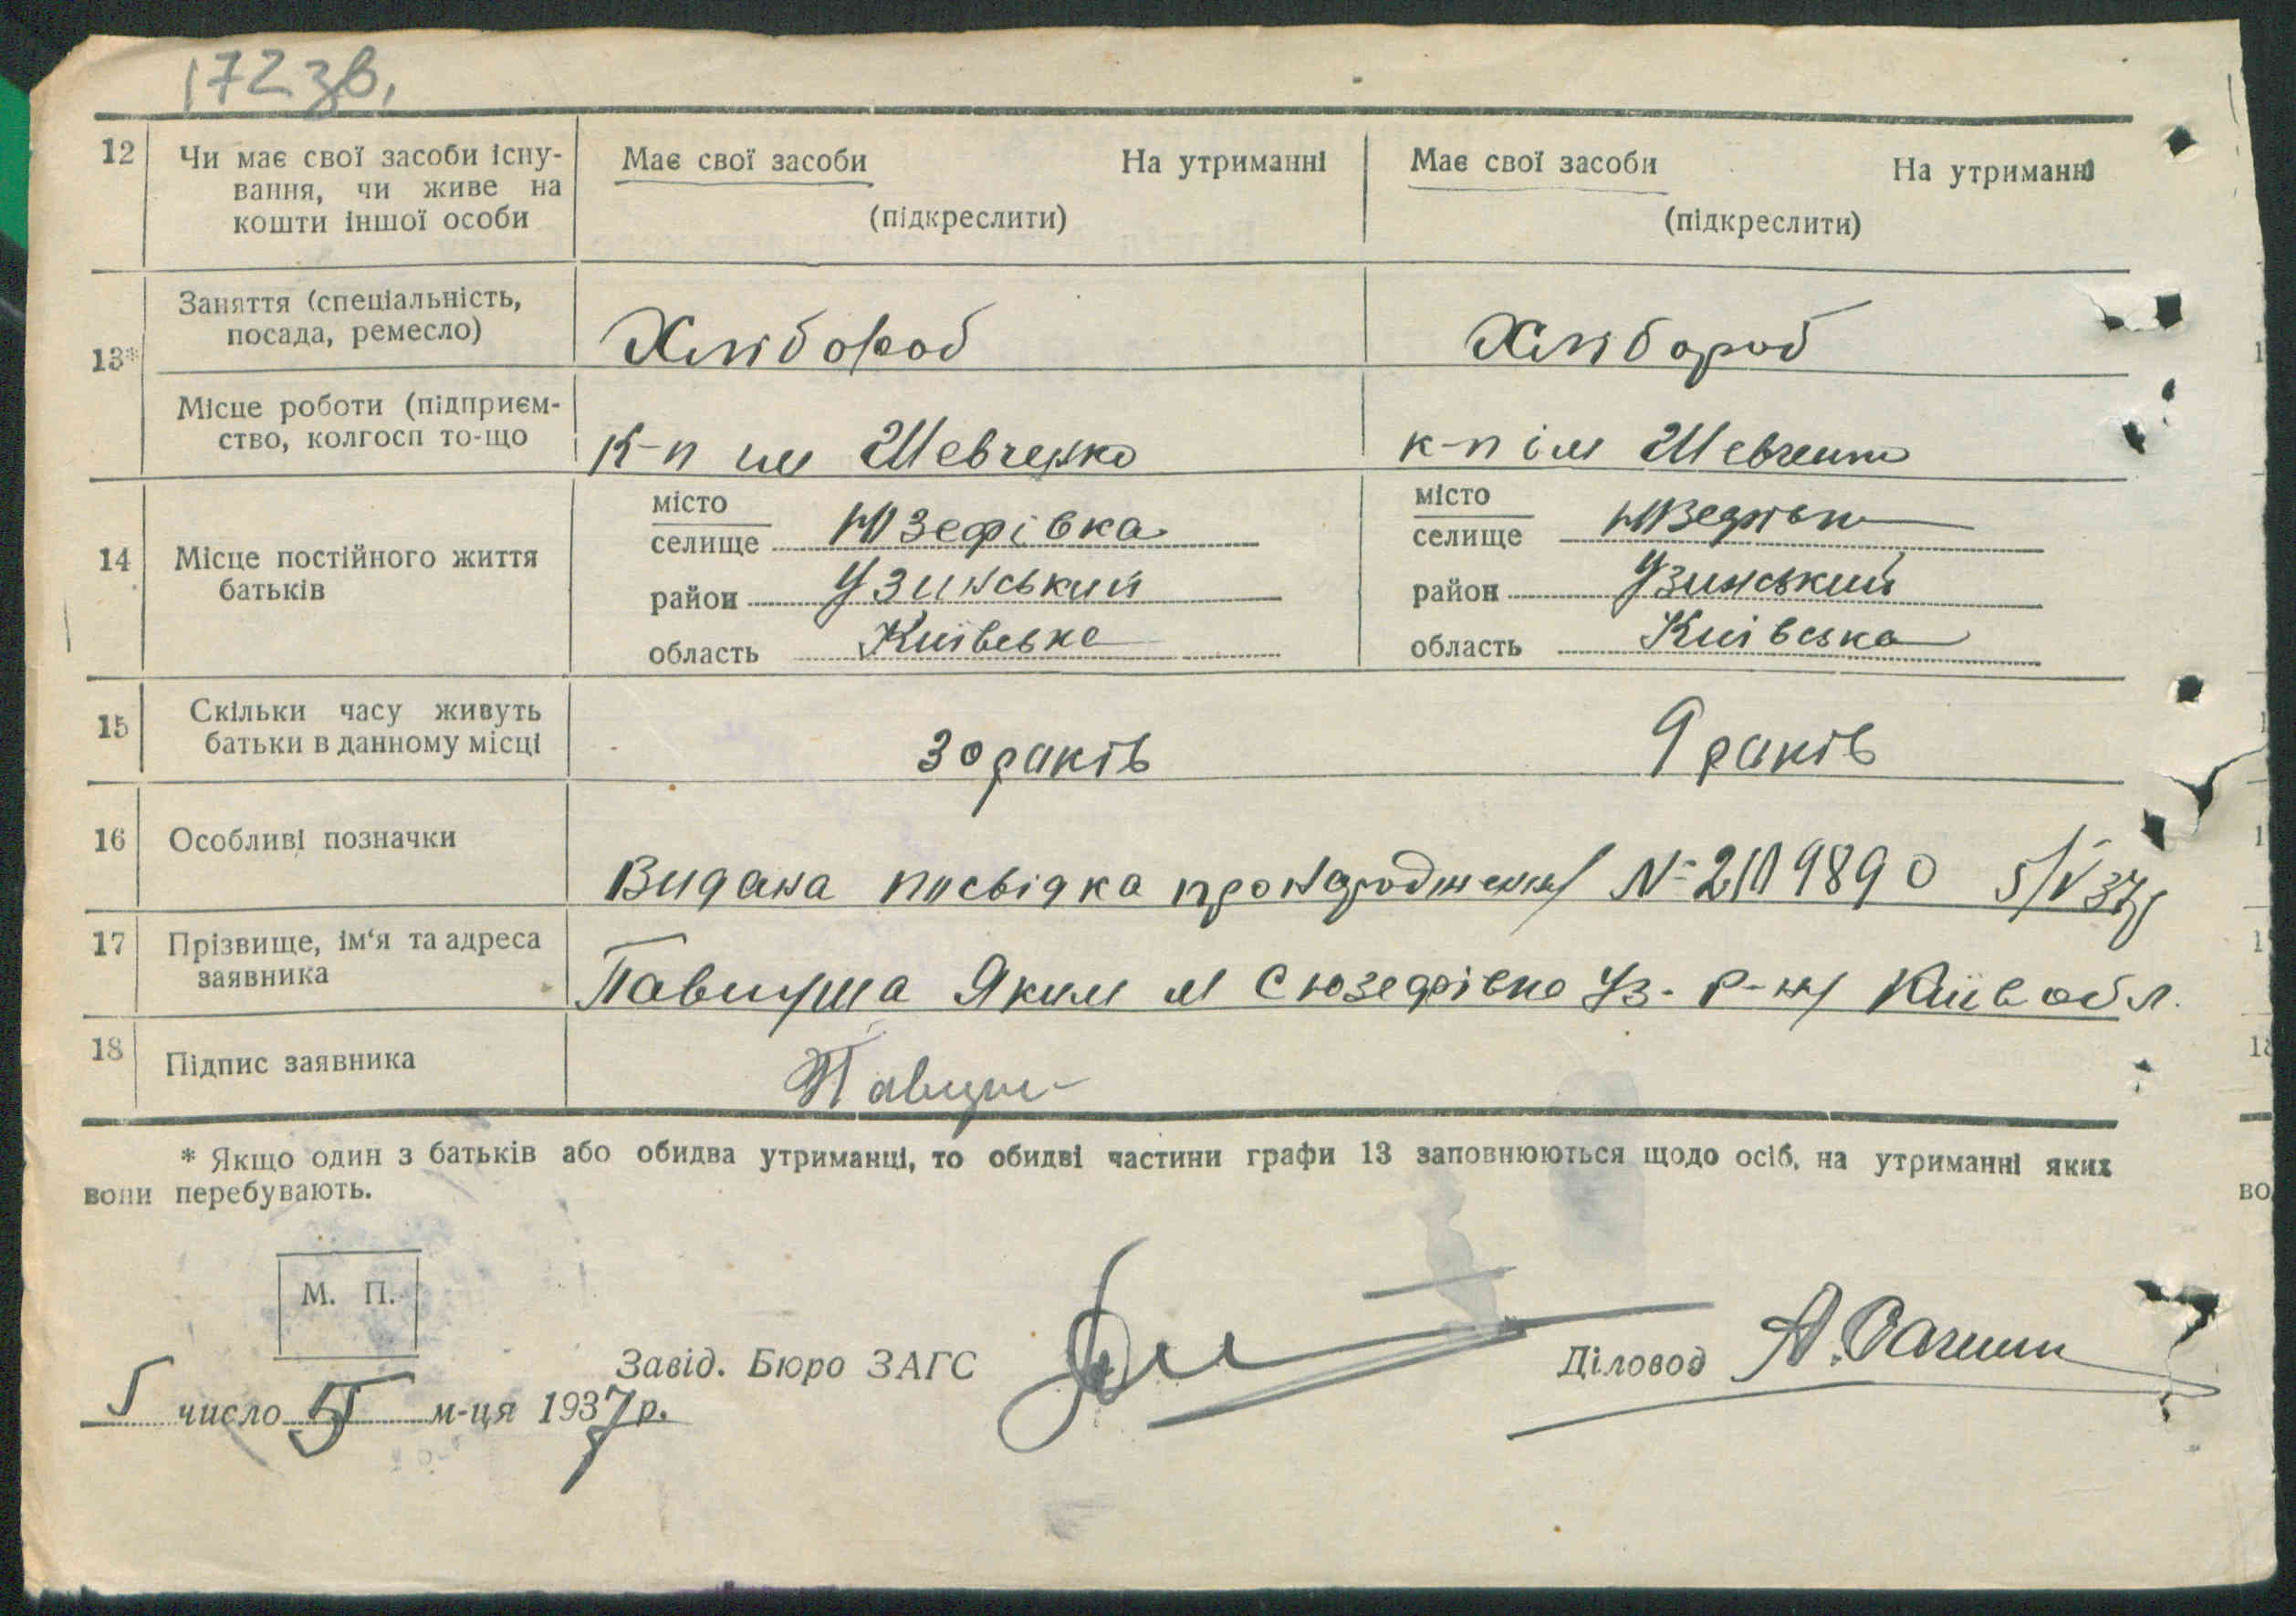 172 зв.
12 Чи має свої засоби існу-
вання, чи живе на
кошти іншої особи
Має свої засоби На утриманні
(підкреслити)
Має свої засоби На утриманні
(підкреслити)
13* Заняття (спеціальність,
посада, ремесло)
Хлібороб Хлібороб
Місце роботи (підприєм-
ство, колгосп то-що
К-п им Шевченко к-п ім Шевченко
14 Місце постійного життя
батьків
місто
селище Юзефівка
район Узинський
область Київська
місто
селище Юзефівка
район Узинський
область Київська
15 Скільки часу живуть
батьки в данному місці
30 раків 9 раків
16 Особливі позначки
Видана посвідка про народження № 9890 5/V 37р
17 Прізвище, ім'я та адреса
заявника
Яким с Юзефівка Уз. р-н Київ обл.
18 Підпис заявника
* Якщо один з батьків або обидва утриманці, то обидві частини графи 13 заповнюються щодо осіб, на утриманні яких
вони перебувають.
М. П.
5 число 5 м-ця 1937 р.
Завід. Бюро ЗАГС
Діловод А.